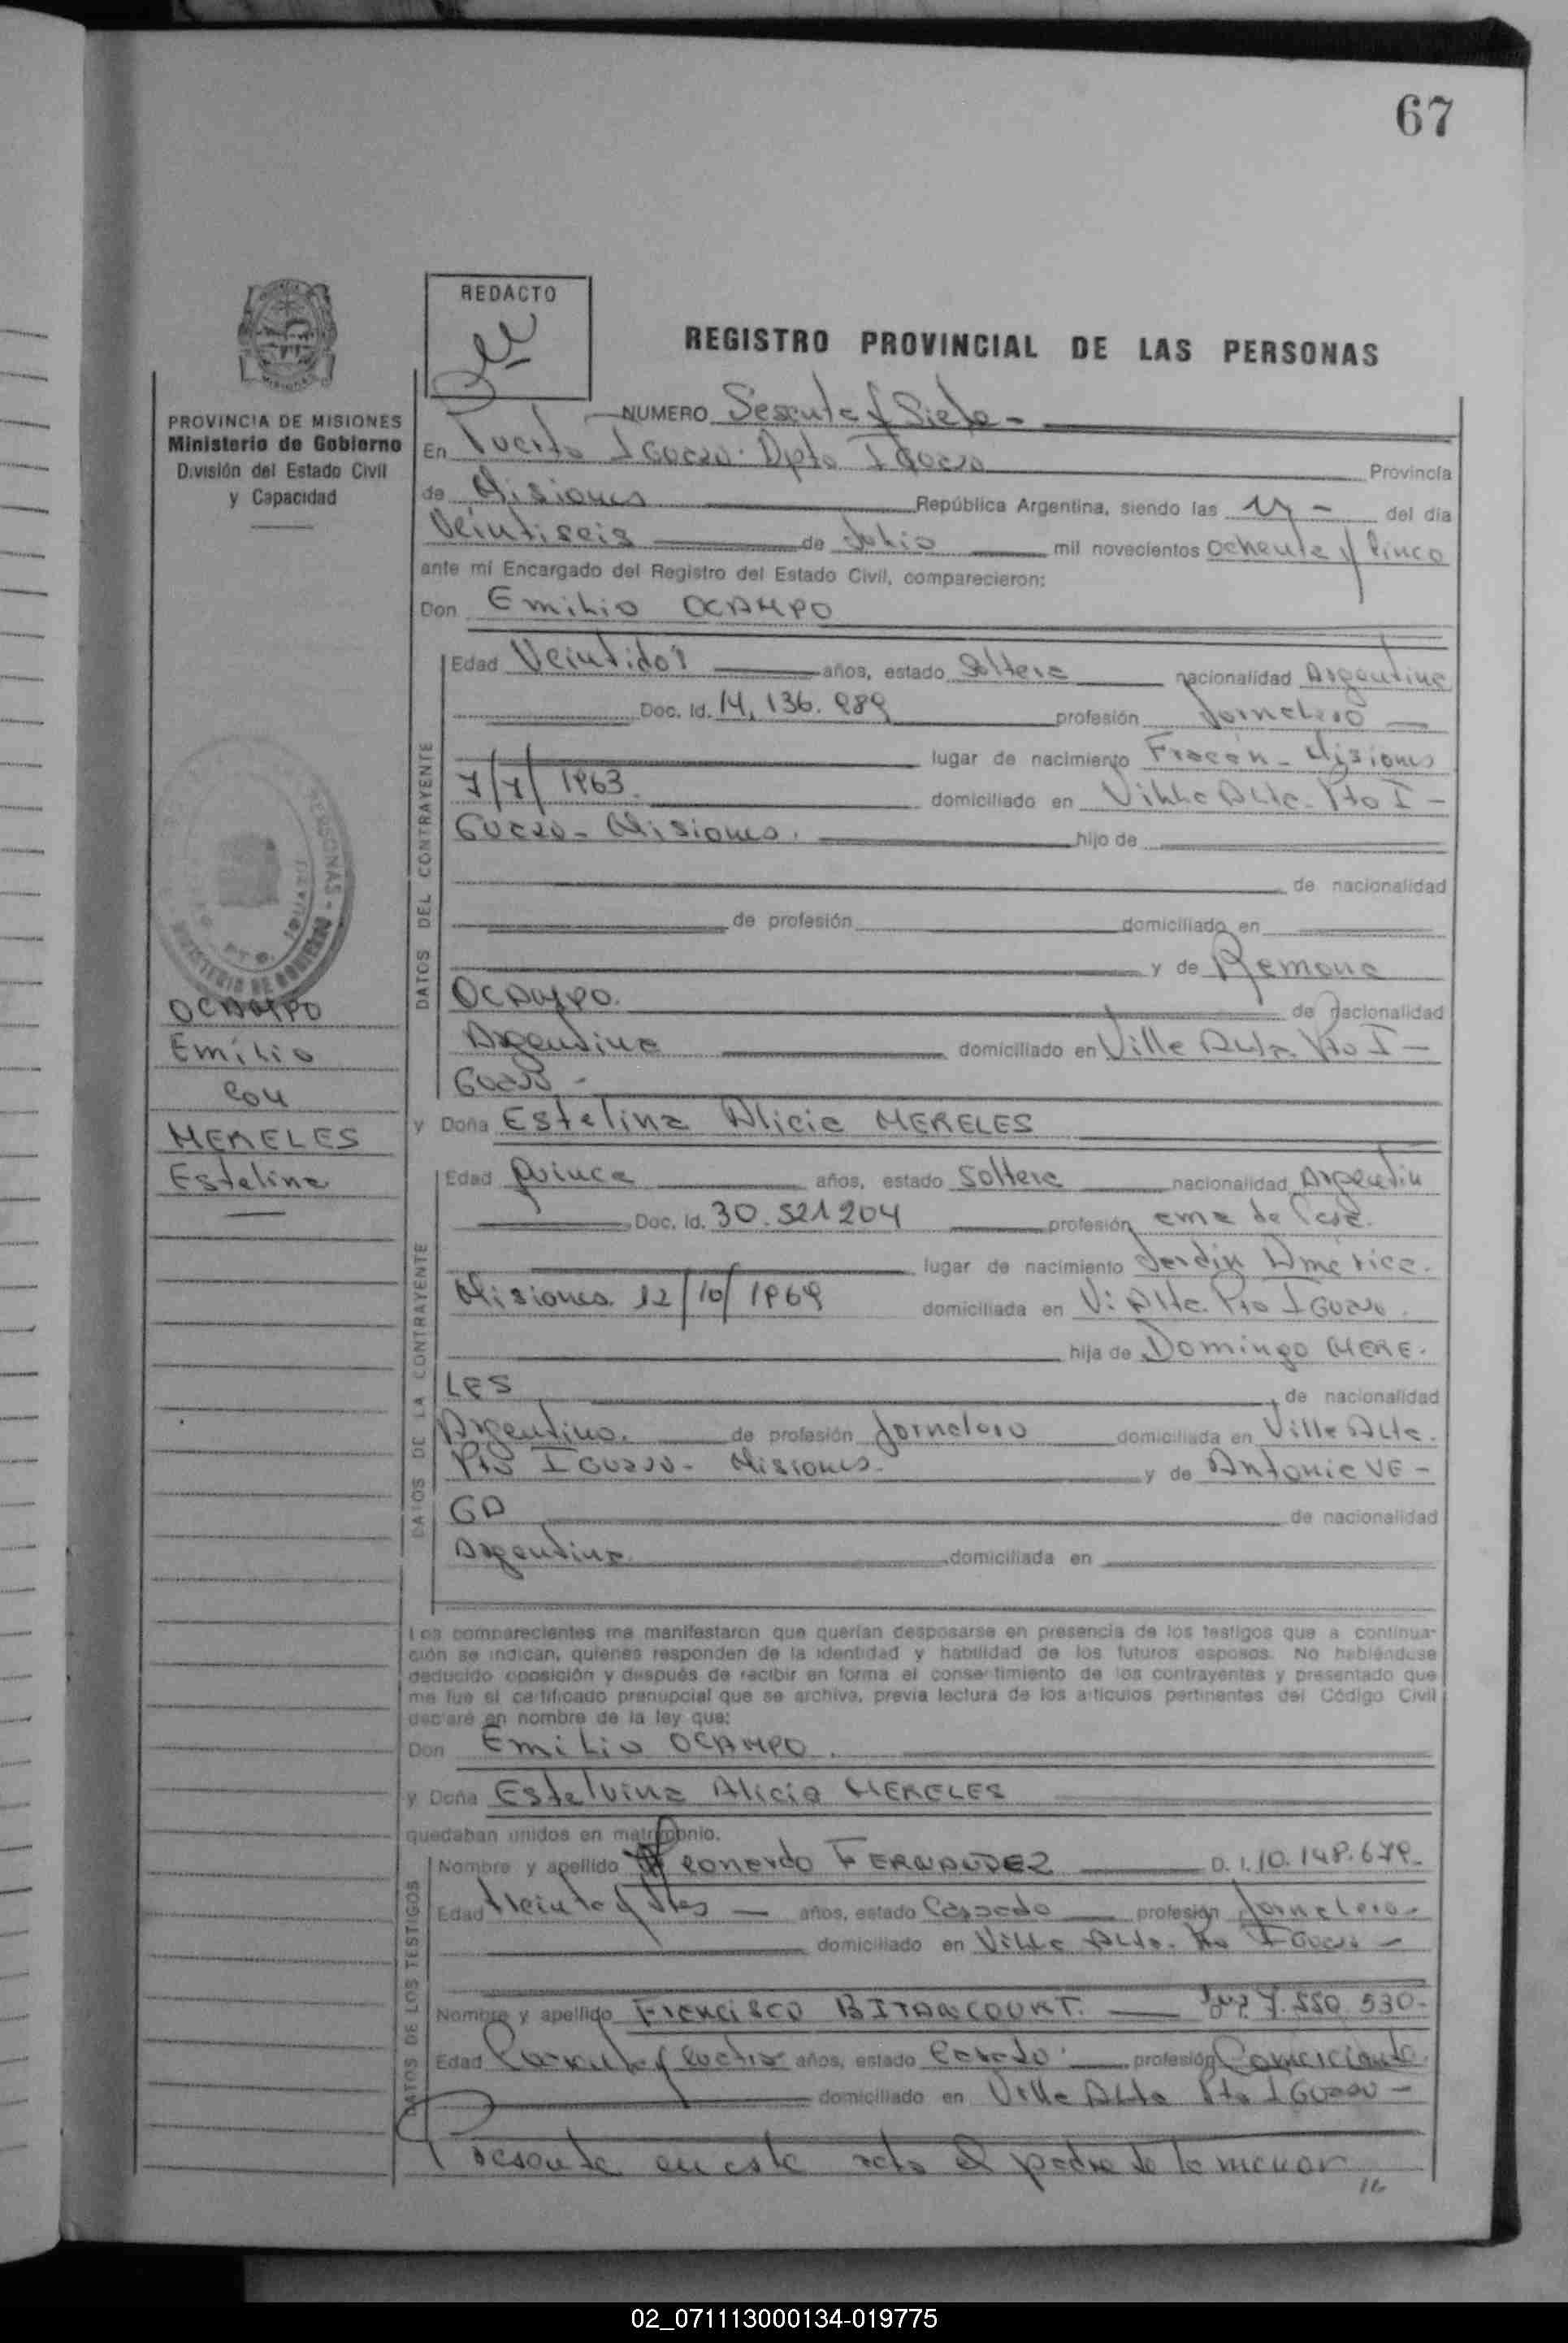 67
REDACTO
REGISTRO PROVINCIAL DE LAS PERSONAS
PROVINCIA DE MISIONES
Ministerio de Gobierno
División del Estado Civil
y Capacidad
NUMERO Sesenta y Siete -
En Puerto Iguazú. Dpto Iguazú Provincia
de Misiones República Argentina, siendo las 11 - del día
Veintiseis de Julio mil novecientos ochenta y cinco
ante mí Encargado del Registro del Estado Civil, comparecieron:
Don Emilio OCAMPO
DATOS DEL CONTRAYENTE
Edad Veintidos años, estado Soltero nacionalidad Argentino
Doc. Id. 14.136.989 profesión Jornalero
lugar de nacimiento Fracán - Misiones
7/7/1963. domiciliado en Villa Alta. Pto I -
Guazú - Misiones. hijo de
de nacionalidad
de profesión domiciliado en
y de Ramona
OCAMPO. de nacionalidad
Argentina domiciliado en Villa Alta Pto I -
Guazú -
OCAMPO
Emilio
con
MERELES
Estelina
y Doña Estelina Alicia MERELES
DATOS DE LA CONTRAYENTE
Edad quince años, estado Soltera nacionalidad Argentin
Doc. Id. 30.521204 profesión ama de casa.
lugar de nacimiento Jardín América.
Misiones 12/10/1969 domiciliada en Vi Alta. Pto Iguazú.
hija de Domingo MERE-
LES de nacionalidad
Argentino. de profesión Jornalero domiciliada en Villa Alta.
Pto Iguazú - Misiones. y de Antonia VE -
GA de nacionalidad
Argentina domiciliada en
Los comparecientes me manifestaron que querían desposarse en presencia de los testigos que a continua-
ción se indican, quienes responden de la identidad y habilidad de los futuros esposos. No habiéndose
deducido oposición y después de recibir en forma el consentimiento de los contrayentes y presentado que
me fue el certificado prenupcial que se archiva, previa lectura de los artículos pertinentes del Código Civil
declaré en nombre de la ley que:
Don Emilio OCAMPO.
y Doña Estelvina Alicia MERELES
quedaban unidos en matrimonio.
DATOS DE LOS TESTIGOS
Nombre y apellido Leonardo FERNANDEZ D.I. 10.148.679.
Edad treinta y tres - años, estado Casado profesión Jornalero.
domiciliado en Villa Alta. Pto Iguazú -
Nombre y apellido Francisco BITANCOURT. 7.550.530.
Edad Cuarenta y cuatro años, estado Casado profesión Comerciante.
domiciliado en Villa Alta Pto Iguazú -
Presente en este acto el padre de la menor
02_071113000134-019775